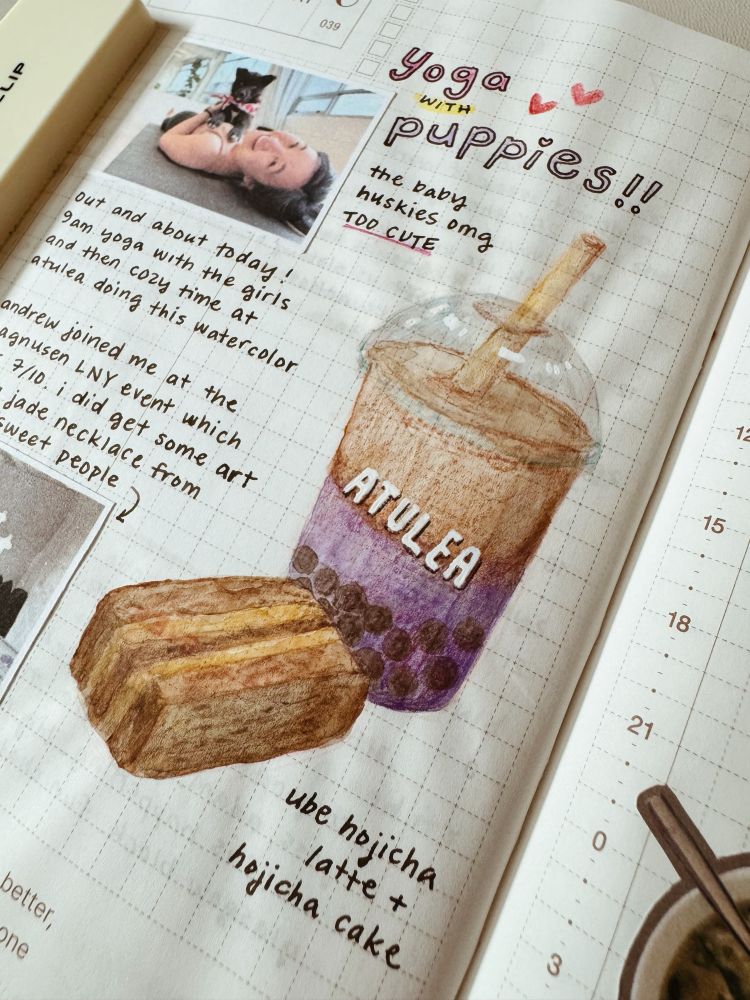 039
Yoga
WITH
puppies!!
the baby
huskies omg
TOO CUTE
out and about today!
9am yoga with the girls
and then cozy time at
atulea doing this watercolor
andrew joined me at the
LNY event which
7/10. i did get some art
jade necklace from
sweet people
ATULEA
ube hojicha
latte +
hojicha cake
better,
one
15
18
21
0
3